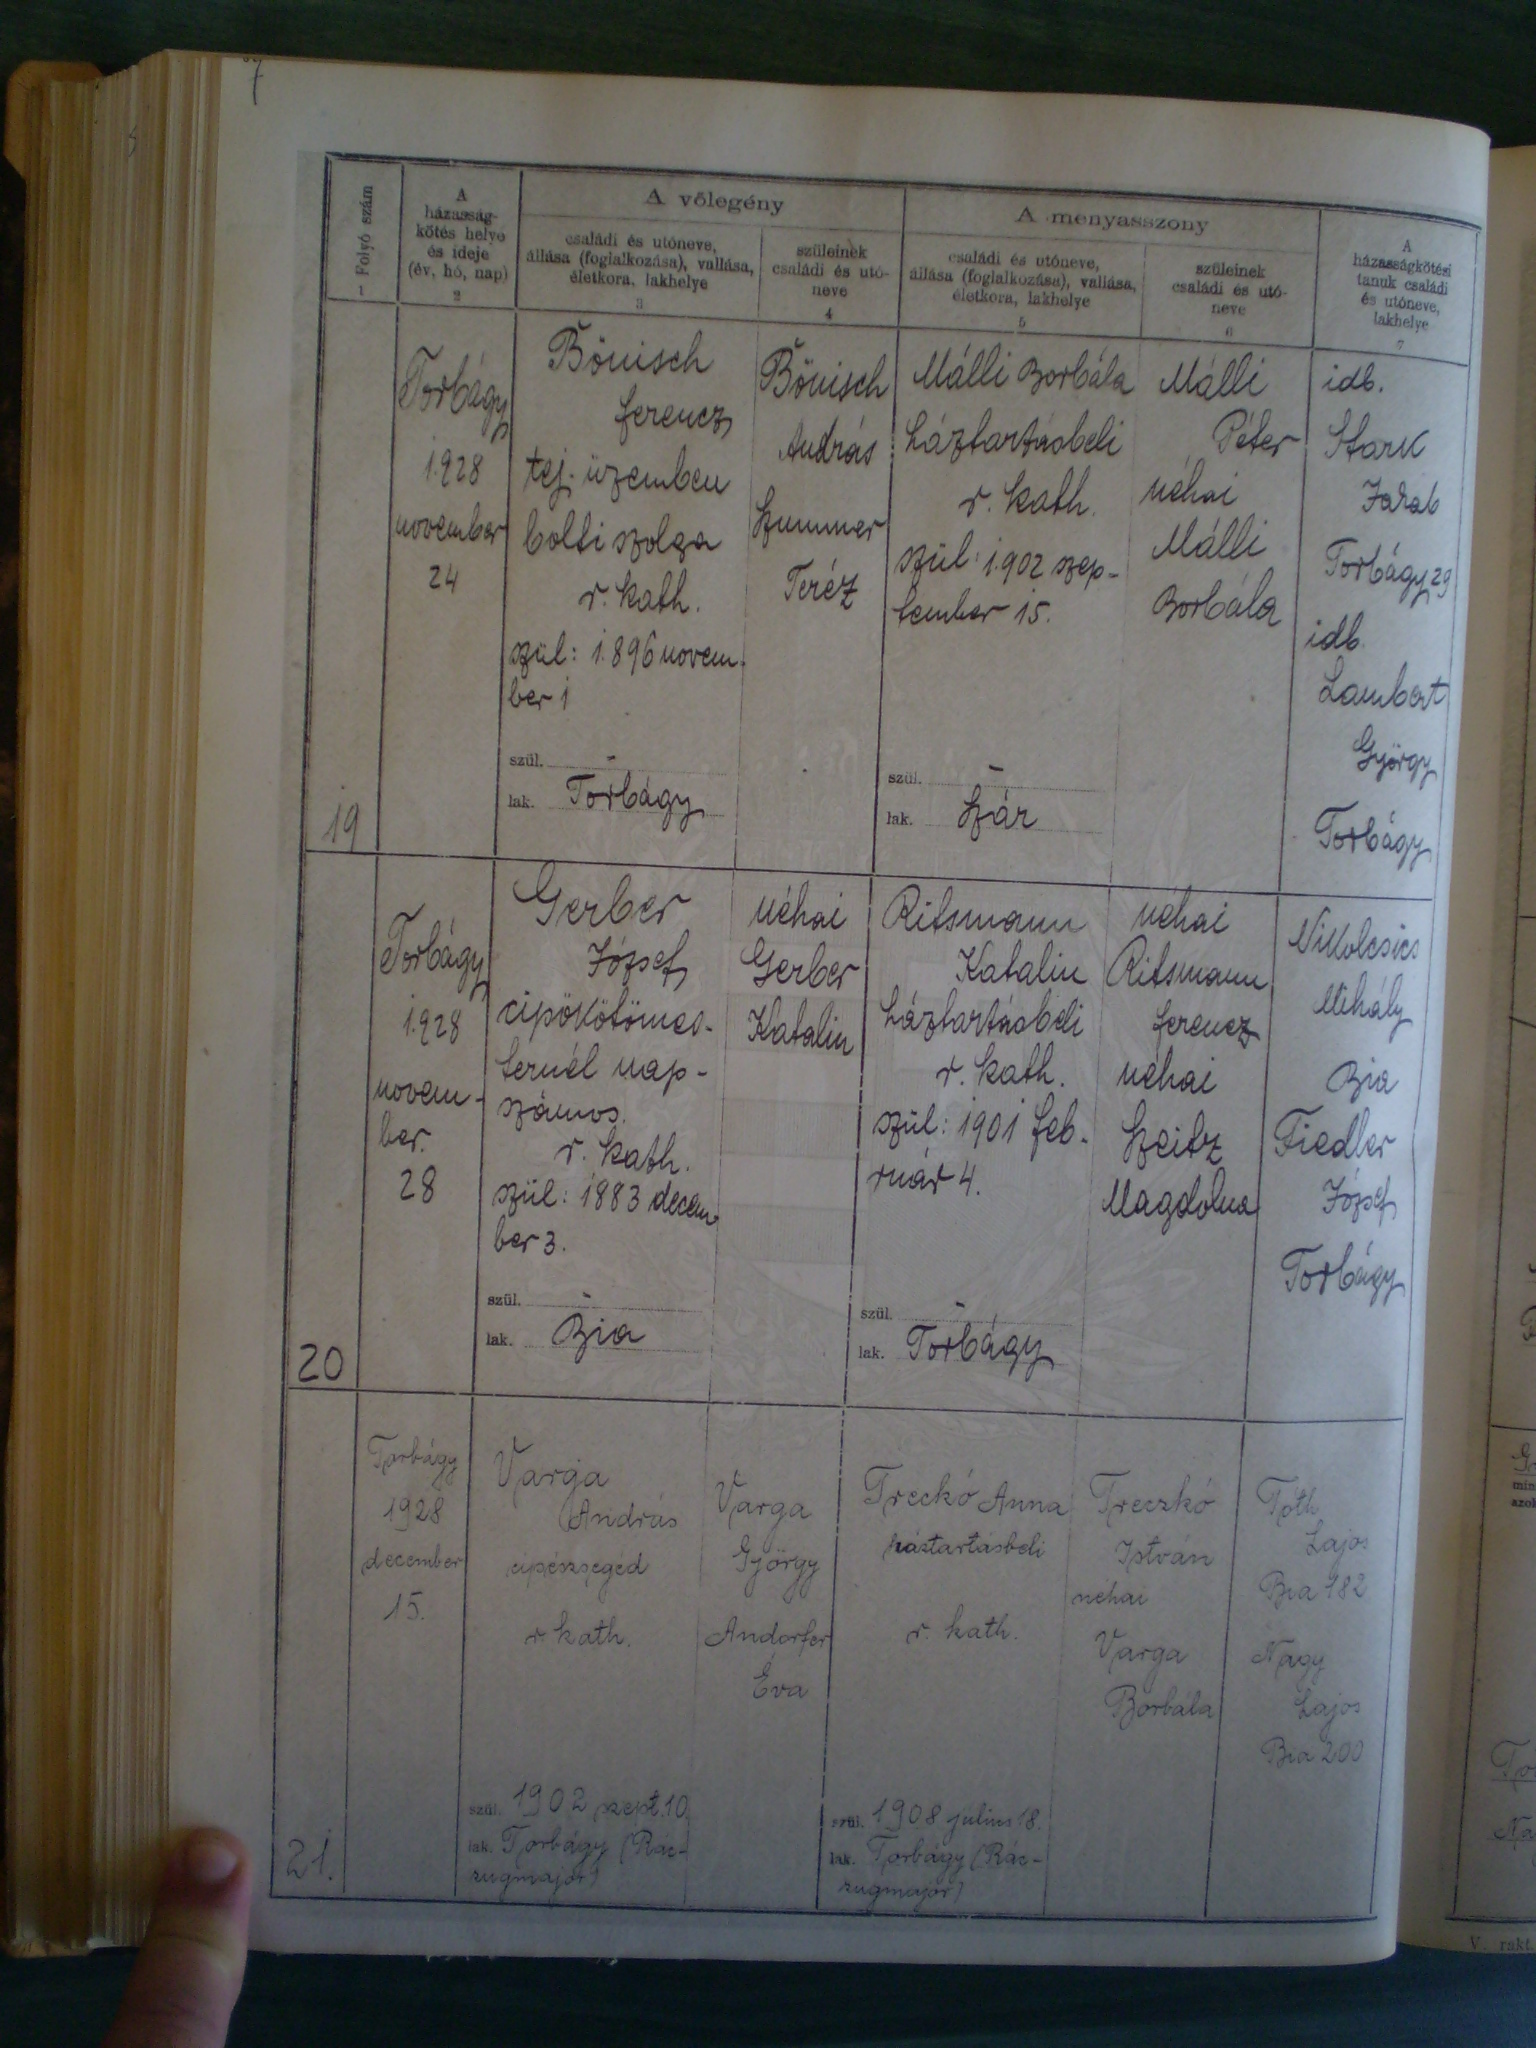 7
Folyó szám
1
A
házasság-
kötés helye
és ideje
(év, hó, nap)
2
A vőlegény
családi és utóneve,
állása (foglalkozása), vallása,
életkora, lakhelye
3
szüleinek
családi és utó-
neve
4
A menyasszony
családi és utóneve,
állása (foglalkozása), vallása,
életkora, lakhelye
5
szüleinek
családi és utó-
neve
6
A
házasságkötési
tanuk családi
és utóneve,
lakhelye
7
19
Torbágy
1928
november
24
Bönisch
ferencz
tej. üzemben
bolti szolga
r. kath.
szül: 1896 novem-
ber 1
szül. -
lak. Torbágy
Bönisch
András
Szummer
Teréz
Málli Borbála
háztartásbeli
r. kath.
szül: 1902 szep-
tember 15.
szül. -
lak. Szár
Málli
Péter
néhai
Málli
Borbála
idb.
Stark
Jakab
Torbágy 29
idb.
Lambert
György
Torbágy
20
Torbágy
1928
novem-
ber.
28
Gerber
József
cipőkötömes-
ternél nap-
számos.
r. kath.
szül: 1883 decem-
ber 3.
szül. -
lak. Bia
néhai
Gerber
Katalin
Ritsmann
Katalin
háztartásbeli
r. kath.
szül: 1901 feb-
ruár 4.
szül. -
lak. Torbágy
néhai
Ritsmann
ferencz
néhai
Szeitz
Magdolna
Nikolcsics
Mihály
Bia
Fiedler
József
Torbágy
21.
Torbágy
1928
december
15.
Varga
András
cipészsegéd
r. kath.
szül. 1902 szept. 10.
lak. Torbágy (Rác-
zugmajor)
Varga
György
Andorfer
Éva
Treckó Anna
hástartásbeli
r. kath.
szül. 1908 július 18.
lak. Torbágy (Rác-
zugmajor)
Treczkó
István
néhai
Varga
Borbála
Tóth
Lajos
Bia 182
Nagy
Lajos
Bia 200
V. rakt.